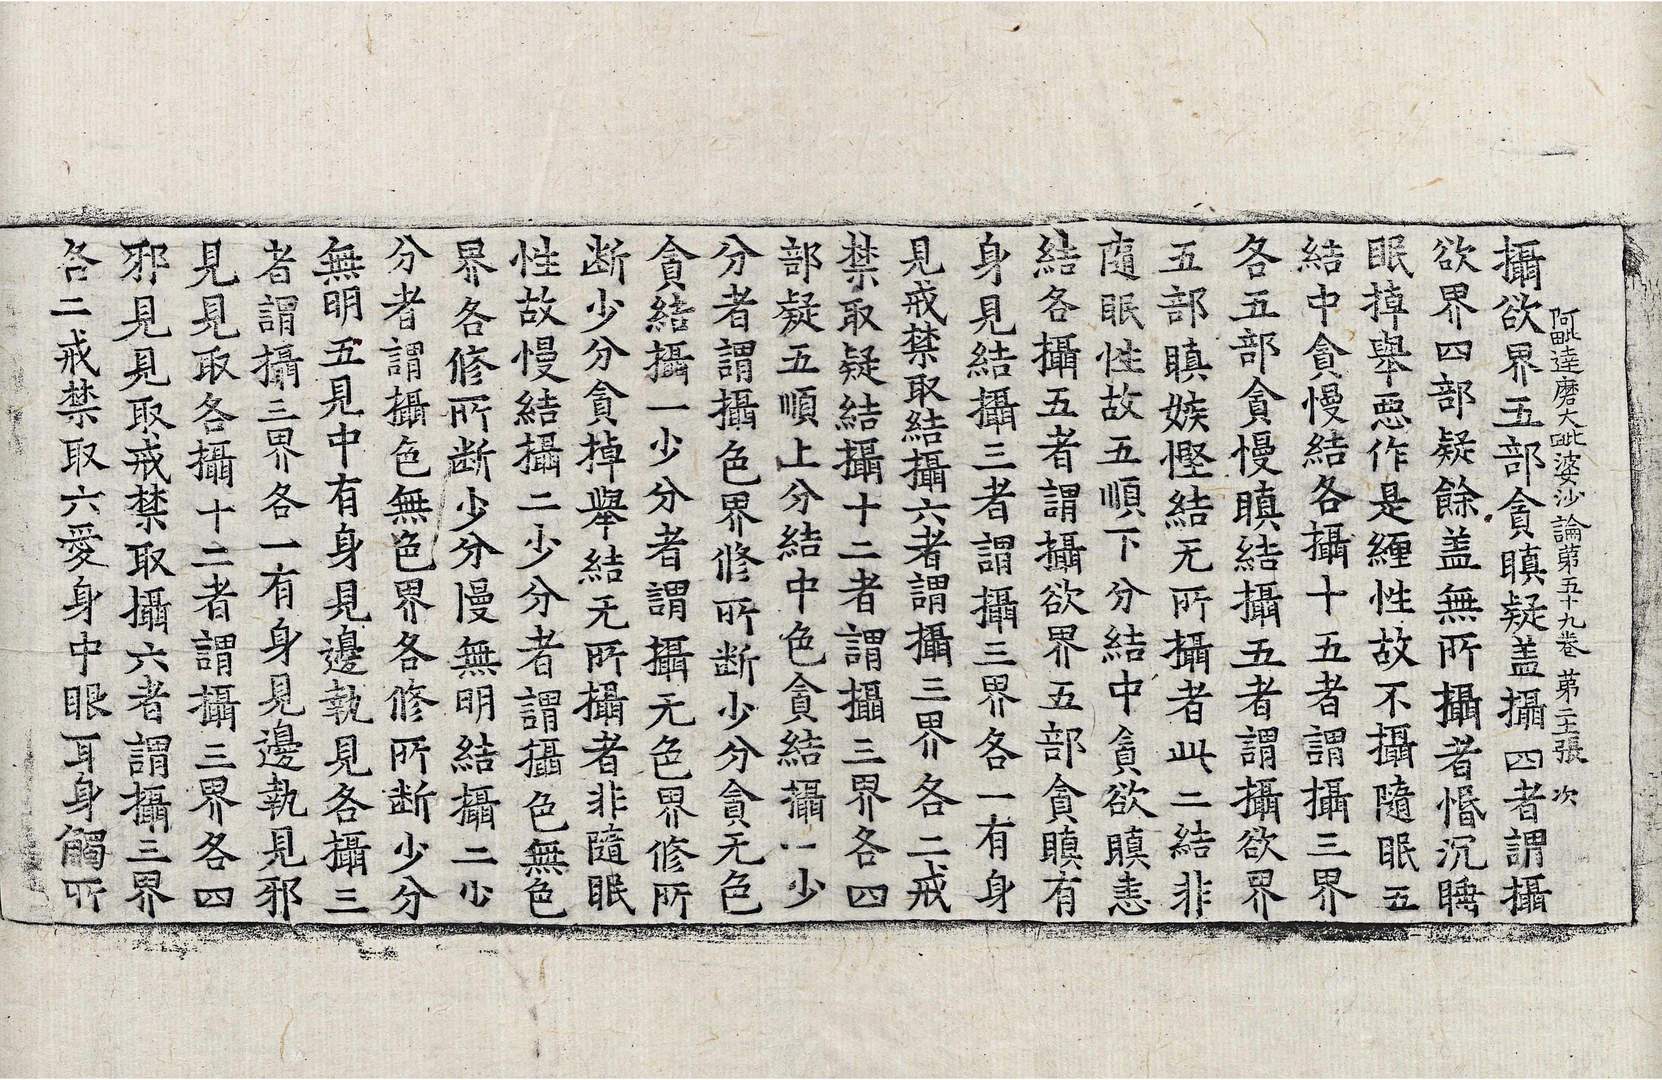 阿毗達磨大毗婆沙論第五十九卷 第二十張 次
攝欲界五部貪瞋疑盖攝四者謂攝
欲界四部疑餘盖無所攝者惛沉睡
眠掉舉惡作是纏性故不攝隨眠五
結中貪慢結各攝十五者謂攝三界
各五部貪慢瞋結攝五者謂攝欲界
五部瞋嫉慳結无所攝者此二結非
隨眠性故五順下分結中貪欲瞋恚
結各攝五者謂攝欲界五部貪瞋有
身見結攝三者謂攝三界各一有身
見戒禁取結攝六者謂攝三界各二戒
禁取疑結攝十二者謂攝三界各四
部疑五順上分結中色貪結攝一少
分者謂攝色界修所断少分貪无色
貪結攝一少分者謂攝无色界修所
断少分貪掉舉結无所攝者非隨眠
性故慢結攝二少分者謂攝色無色
界各修所断少分慢無明結攝二少
分者謂攝色無色界各修所断少分
無明五見中有身見邊執見各攝三
者謂攝三界各一有身見邊執見邪
見見取各攝十二者謂攝三界各四
邪見見取戒禁取攝六者謂攝三界
各二戒禁取六愛身中眼耳身觸所